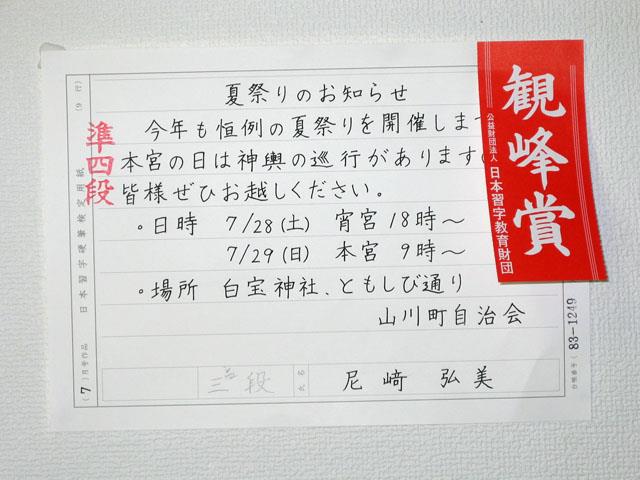 夏祭りのお知らせ
今年も恒例の夏祭りを開催しま
本宮の日は神輿の巡行があります
皆様ぜひお越しください。
。日時 7/28(土) 宵宮 18時～
7/29(日) 本宮 9時～
。場所 白宝神社、ともしび通り
山川町自治会
三段
氏名
尼﨑 弘美
準四段
日本習字硬筆検定用紙
(9行)
(7)月号作品
観峰賞
公益財団法人 日本習字教育財団
83-1249